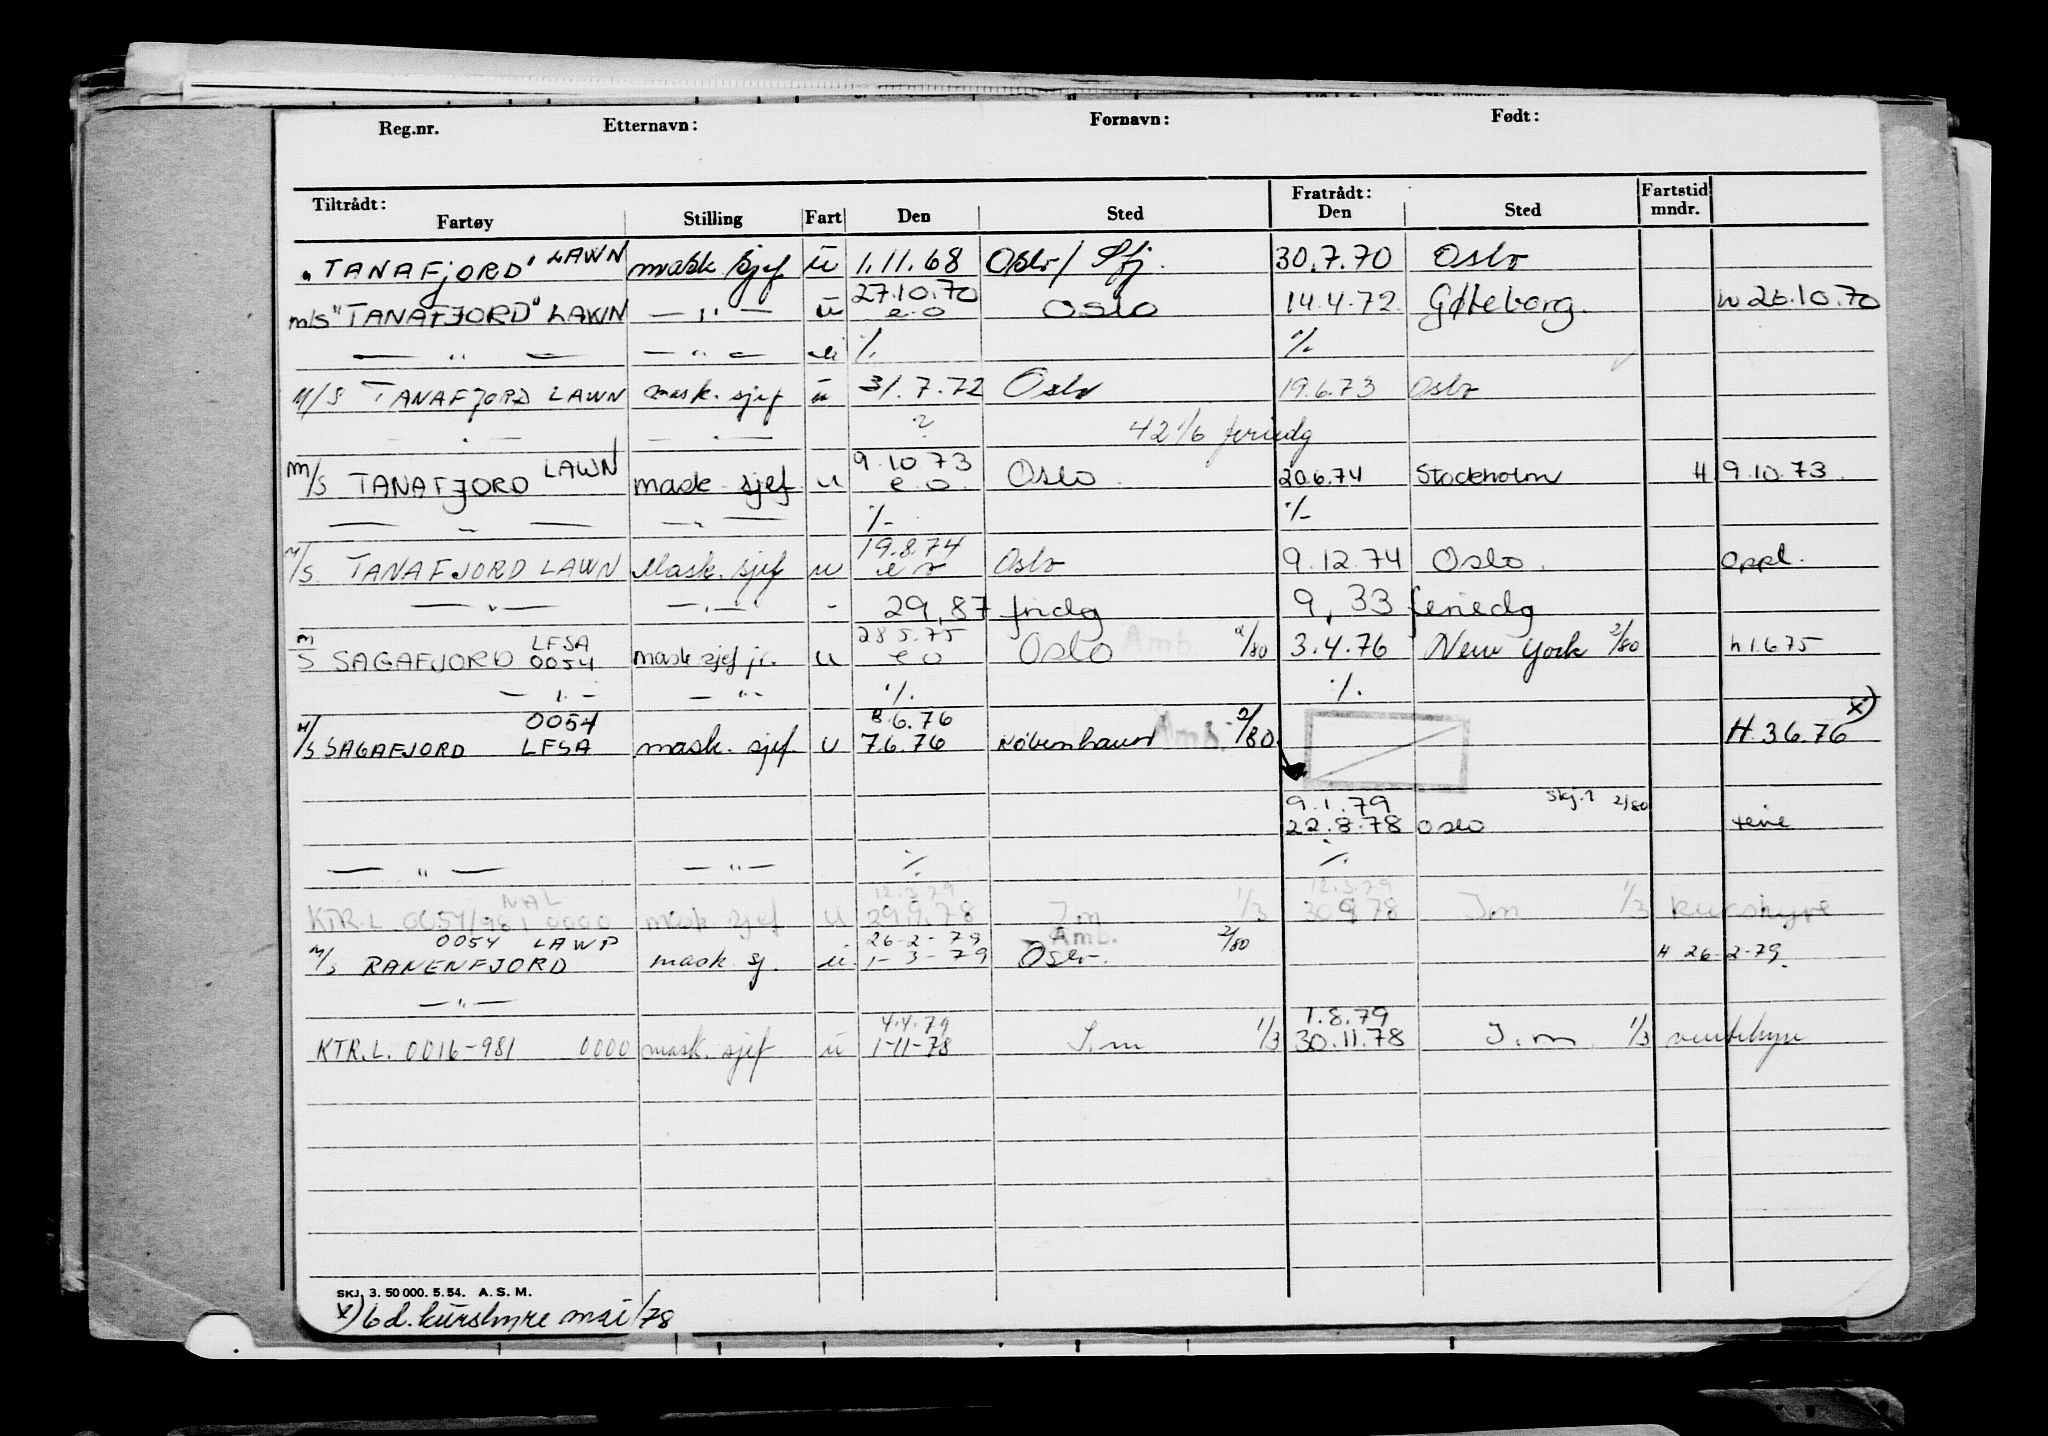 Reg.nr. Etternavn: Fornavn: Født:
Tiltrådt: Fratrådt: Fartstid
Fartøy Stilling Fart Den Sted Den Sted mndr.
"TANAFJORD" LAWN mask sjef ü 1.11.68 Oslo/ Sfj. 30.7.70 Oslo
27.10.70
m/s "TANAFJORD" LAWN — " — ü e.o Oslo 14.4.72 Gøteborg. 26.10.70
— " — — " — ü ·/. ·/.
M/S TANAFJORD LAWN mask. sjef ü 31.7.72 Oslo 19.6.73 Oslo
— " — — " — ? 42 1/6 feriedg
m/s TANAFJORD LAWN mask. sjef u 9.10.73 e.o. Oslo 20.6.74 Stockholm H 9.10.73.
— " — — " — ·/. ·/.
19.8.74
M/S TANAFJORD LAWN Mask. sjef u e o Oslo 9.12.74 Oslo. Oppl.
— " — — " — - 29,87 fridg 9,33 feriedg
LFSA 28.5.75
m/s SAGAFJORD 0054 mask sjef jr. u e o Oslo Amb. 2/80 3.4.76 New York 2/80 h 1.6.75
— " — — " — ·/. ·/.
0054 8.6.76 x)
M/S SAGAFJORD LFSA mask. sjef u 7.6.76 København Amb. 2/80 H. 3.6.76
9.1.79 skj.1 2/80
22.8.78 Oslo ferie
— " — — " — ·/. ·/.
NAL 12.3.79 12.3.79
KTR.L 0054/981 0000 mask sjef u 29.9.78 I.m 1/3 30.9.78 I.m 1/3 kurshyre
0054 LAWP 26-2-79 Amb. 2/80
M/S RANENFJORD mask. sj. ü. 1-3-79 Oslo. H 26-2-79.
— " —
4.4.79 1.8.79
KTR.L. 0016-981 0000 mask. sjef ü 1-11-78 I.m 1/3 30.11.78 I.m. 1/3 ventehyre
SKJ. 3. 50 000. 5. 54. A. S. M.
x) 6 d. kurshyre mai/78